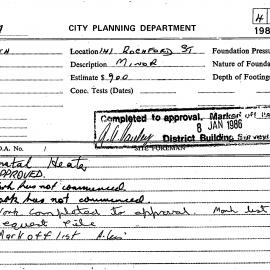 CITY PLANNING DEPARTMENT
198
Location 141 ROCHFORD ST
Foundation Press
Description MINOR
Nature of Founda
Estimate $900
Depth of Footing
Conc. Tests (Dates)
Completed to approval. Marked off list
8 JAN 1986
District Building Surveyor
D.A. No.
SITE FOREMAN
Heater
APPROVED.
has not commenced.
has not commenced.
Work completed to approval. Mark list
request file
Mark off list